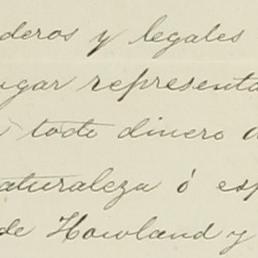 deros y legales
ugar representa
todo dinero
aturaleza ó esp
de Howland y